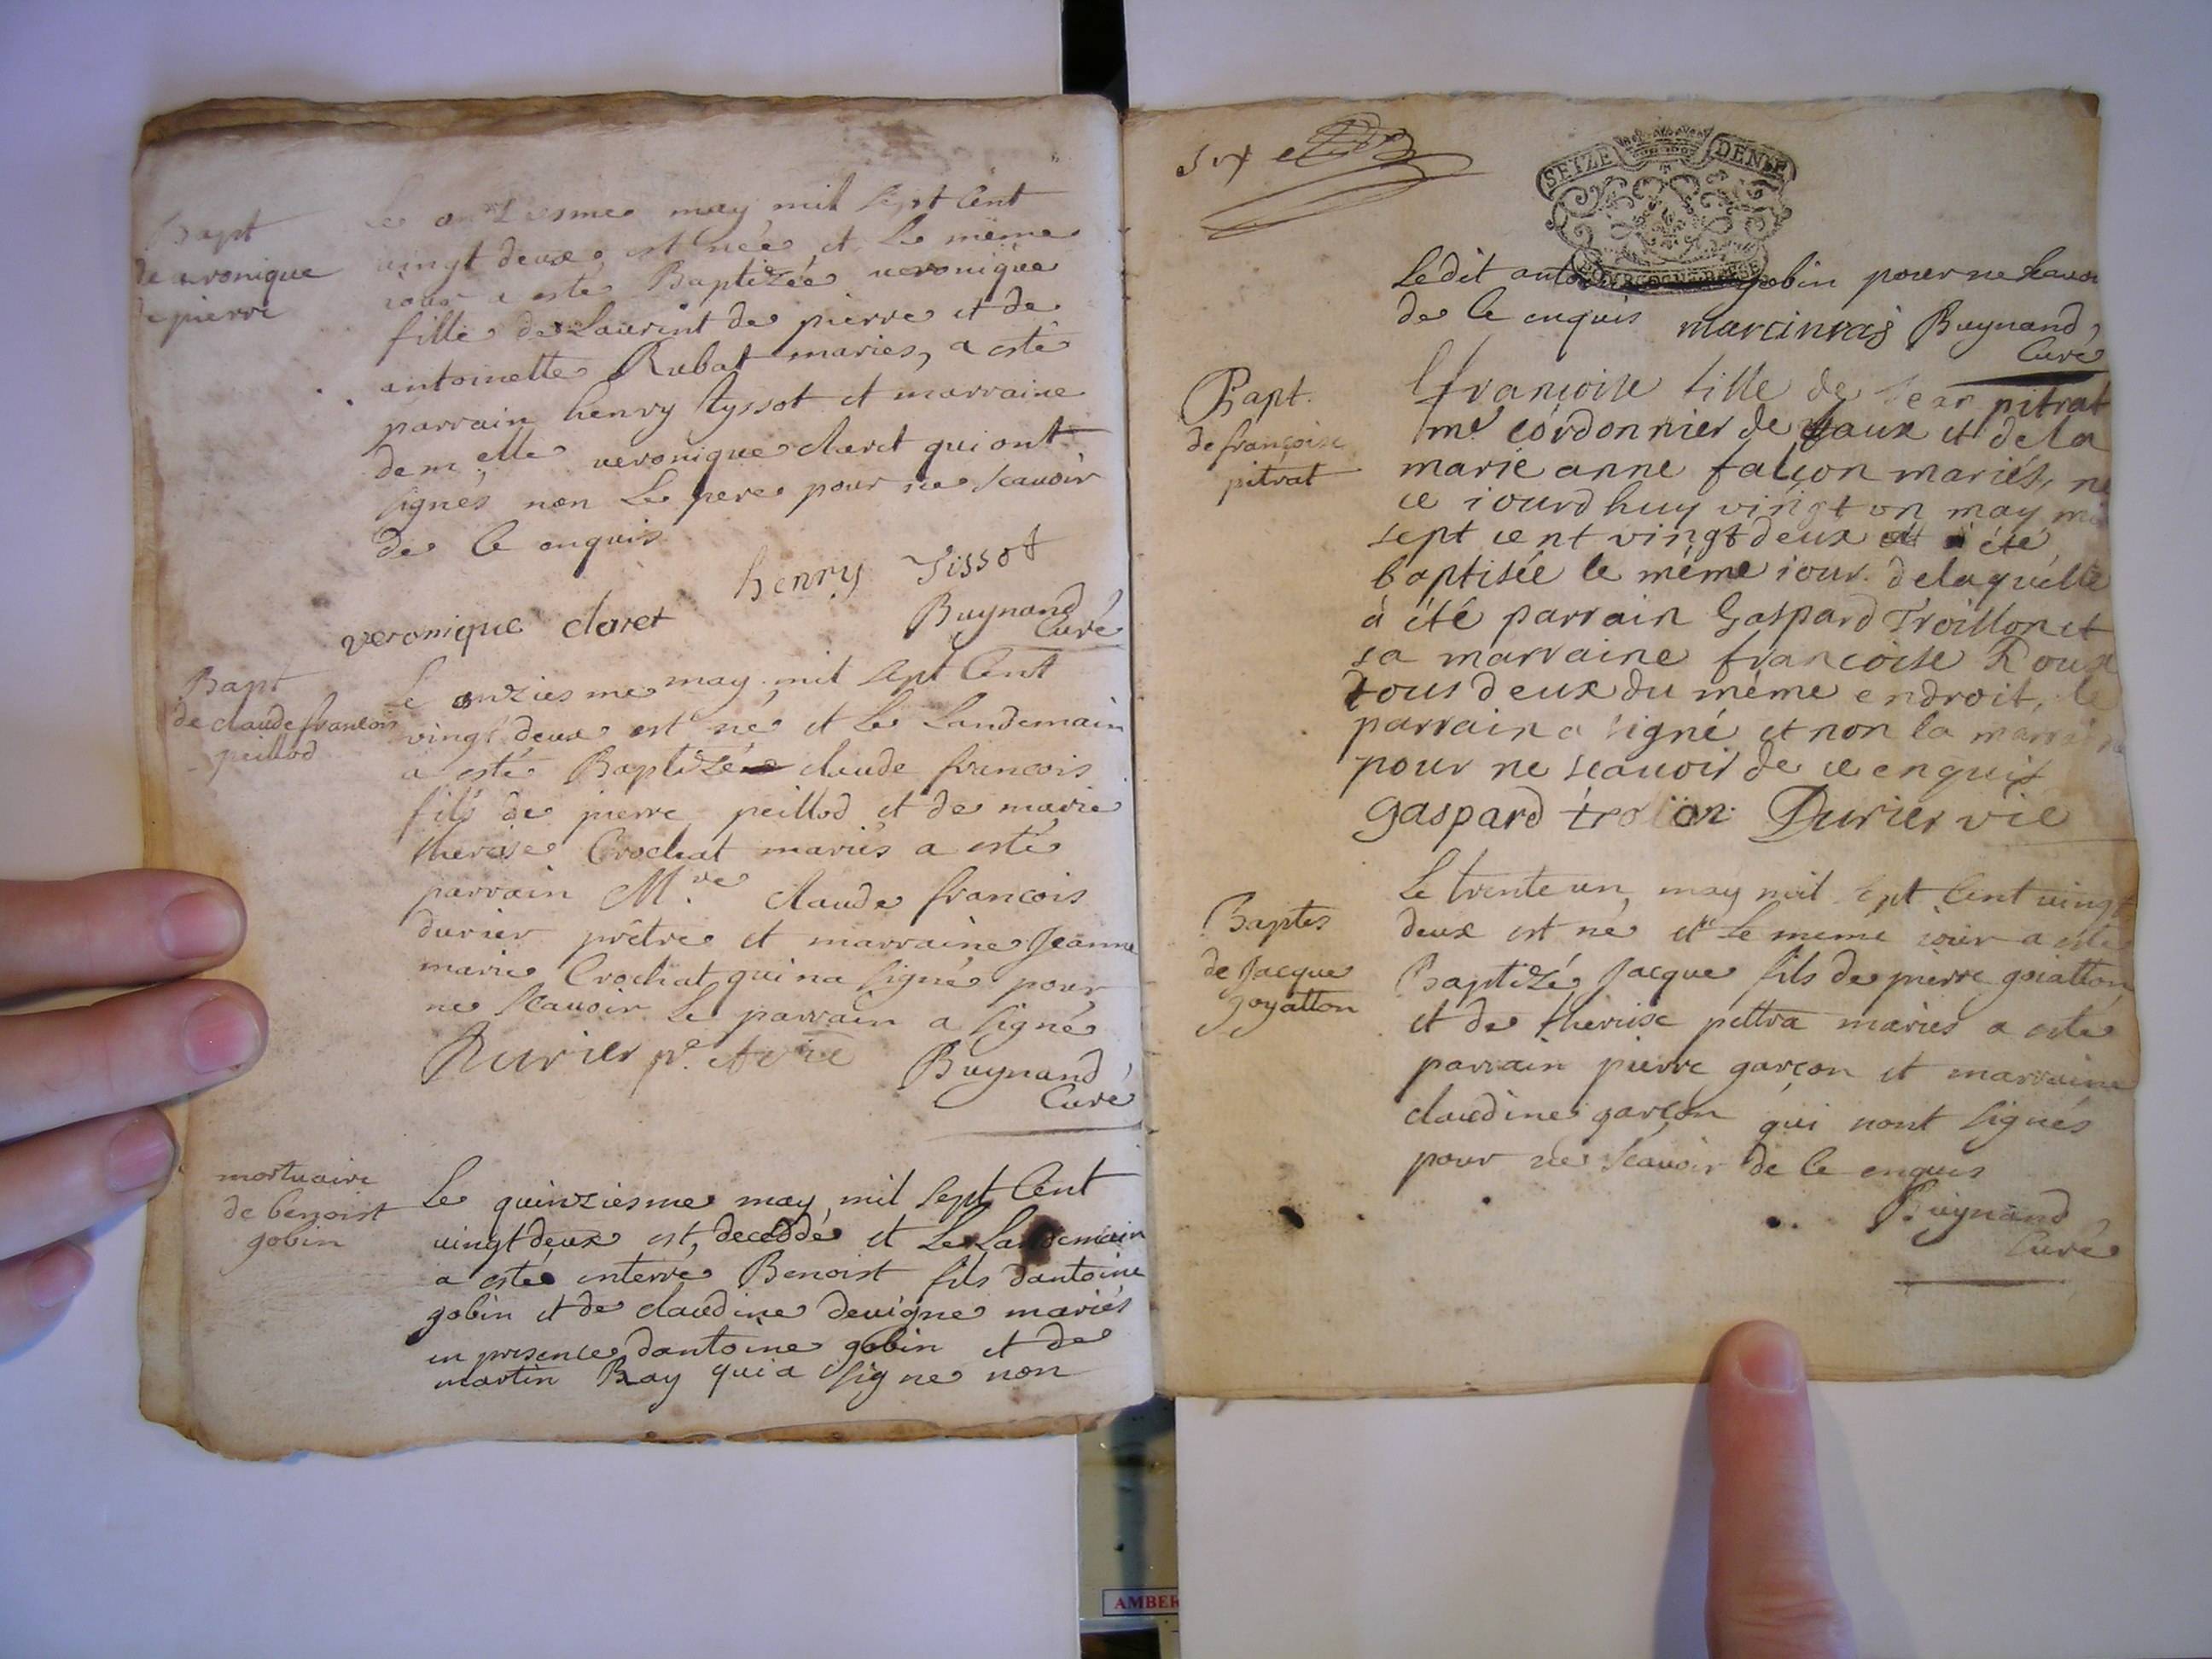 Bapt
de veronique
de pierre
Le onziesme may mil sept Cent
vingt deux est née et Le même
iour a esté Baptizée veronique
fille de Laurent de pierre et de
antoinette Rubat maries, a esté
parrain henry tyssot et marraine
demelle veronique claret qui ont
signés non Le pere pour ne scauoir
de Ce enquis
henry Tissot
veronique claret
Buynand
Curé
Bapt
de claude francois
peillod
Le onziesme may mil sept Cent
vingt deux est né et Le Landemain
a esté Baptizé claude francois
fils de pierre peillod et de marie
therese Crochat mariés a esté
parrain Mre claude francois
durier prêtre et marraine Jeanne
marie Crochat qui na signé pour
ne scauoir Le parrain a signé
Durier pr.
Buynand
Curé
mortuaire
de benoist
gobin
Le quinziesme may mil sept Cent
vingt deux est decedé et Le Landemain
a esté enterré Benoist fils dantoine
gobin et de claudine deuigne mariés
en presence dantoine gobin et de
martin Ray qui a signe non
six
SEIZE DENIE
Ledit gobin pour ne scauoi
de Ce enquis Buynand
Curé
Bapt.
de françoise
pitrat
françoise fille de Jean pitrat
me cordonnier de Vaux et de la
marie anne falcon mariés,
ce iourdhuy vingt un may mi
sept cent vingt deux a été
baptisée le même iour delaquelle
à été parrain Gaspard Troillon et
sa marraine francoise Roux
tous deux du même endroit, le
parrain a signé et non la marraine
pour ne scauoir de ce enquis
gaspard trolion Durier vic
Baptes
de Jacque
goyatton
Le trente un may mil sept Cent vingt
deux est né et Le meme iour a esté
Baptizé Jacque fils de pierre goiatton
et de therese pittra mariés a esté
parrain pierre garçon et marraine
claudine garçon qui nont signés
pour ne scauoir de Ce enquis
Buynand
Curé
AMBER